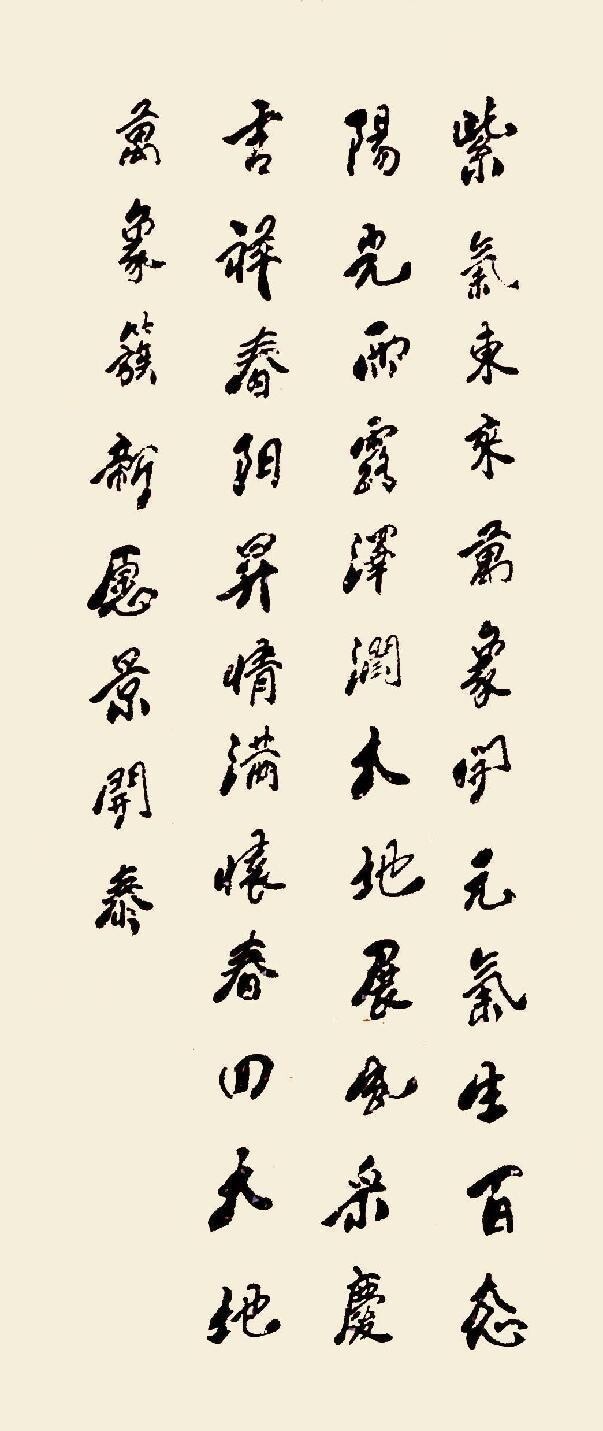 紫氣東來萬象開元氣生百态
陽光雨露澤潤大地展風采慶
吉祥春阳昇情满懷春回大地
萬象簇新愿景開泰